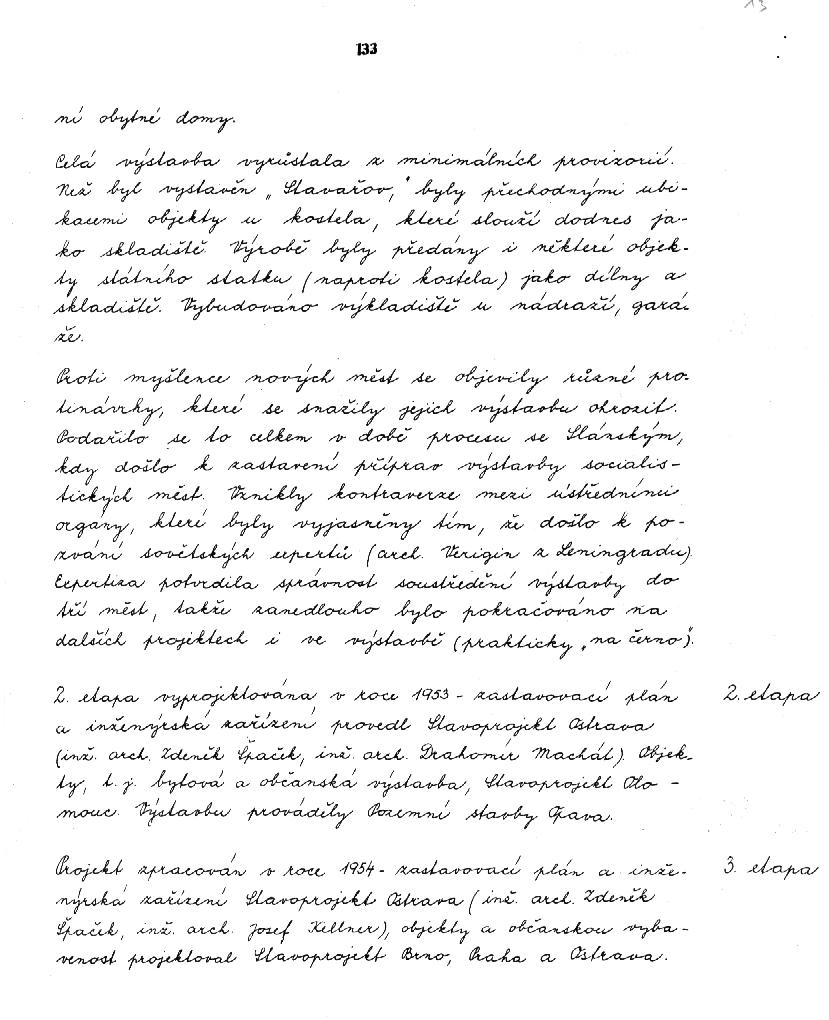 13
133
ní obytné domy.
Celá výstavba vyrůstala z minimálních provizorií.
Než byl vystavěn „Stavařov,“ byly přechodnými ubi-
kacemi objekty u kostela, které slouží dodnes ja-
ko skladiště. Výrobě byly předány i některé objek-
ty státního statku (naproti kostela) jako dílny a
skladiště. Vybudováno výkladiště u nádraží, gará-
že.
Proti myšlence nových měst se objevily různé pro-
tinávrhy, které se snažily jejich výstavbu ohrozit.
Podařilo se to celkem v době procesu se Slánským,
kdy došlo k zastavení příprav výstavby socialis-
tických měst. Vznikly kontraverze mezi ústředními
orgány, které byly vyjasněny tím, že došlo k po-
zvání sovětských expertů (arch. Verigin z Leningradu).
Expertiza potvrdila správnost soustředění výstavby do
tří měst, takže zanedlouho bylo pokračováno na
dalších projektech i ve výstavbě (prakticky „na černo“).
2. etapa vyprojektována v roce 1953 - zastavovací plán
2. etapa
a inženýrská zařízení provedl Stavoprojekt Ostrava
(inž. arch. Zdeněk Špaček, inž. arch. Drahomír Machát). Objek-
ty, t. j. bytová a občanská výstavba, Stavoprojekt Olo-
mouc. Výstavbu prováděly Pozemní stavby Opava.
Projekt zpracován v roce 1954 - zastavovací plán a inže-
3. etapa
nýrská zařízení Stavoprojekt Ostrava (inž. arch. Zdeněk
Špaček, inž. arch. Josef Kellner), objekty a občanskou vyba-
venost projektoval Stavoprojekt Brno, Praha a Ostrava.